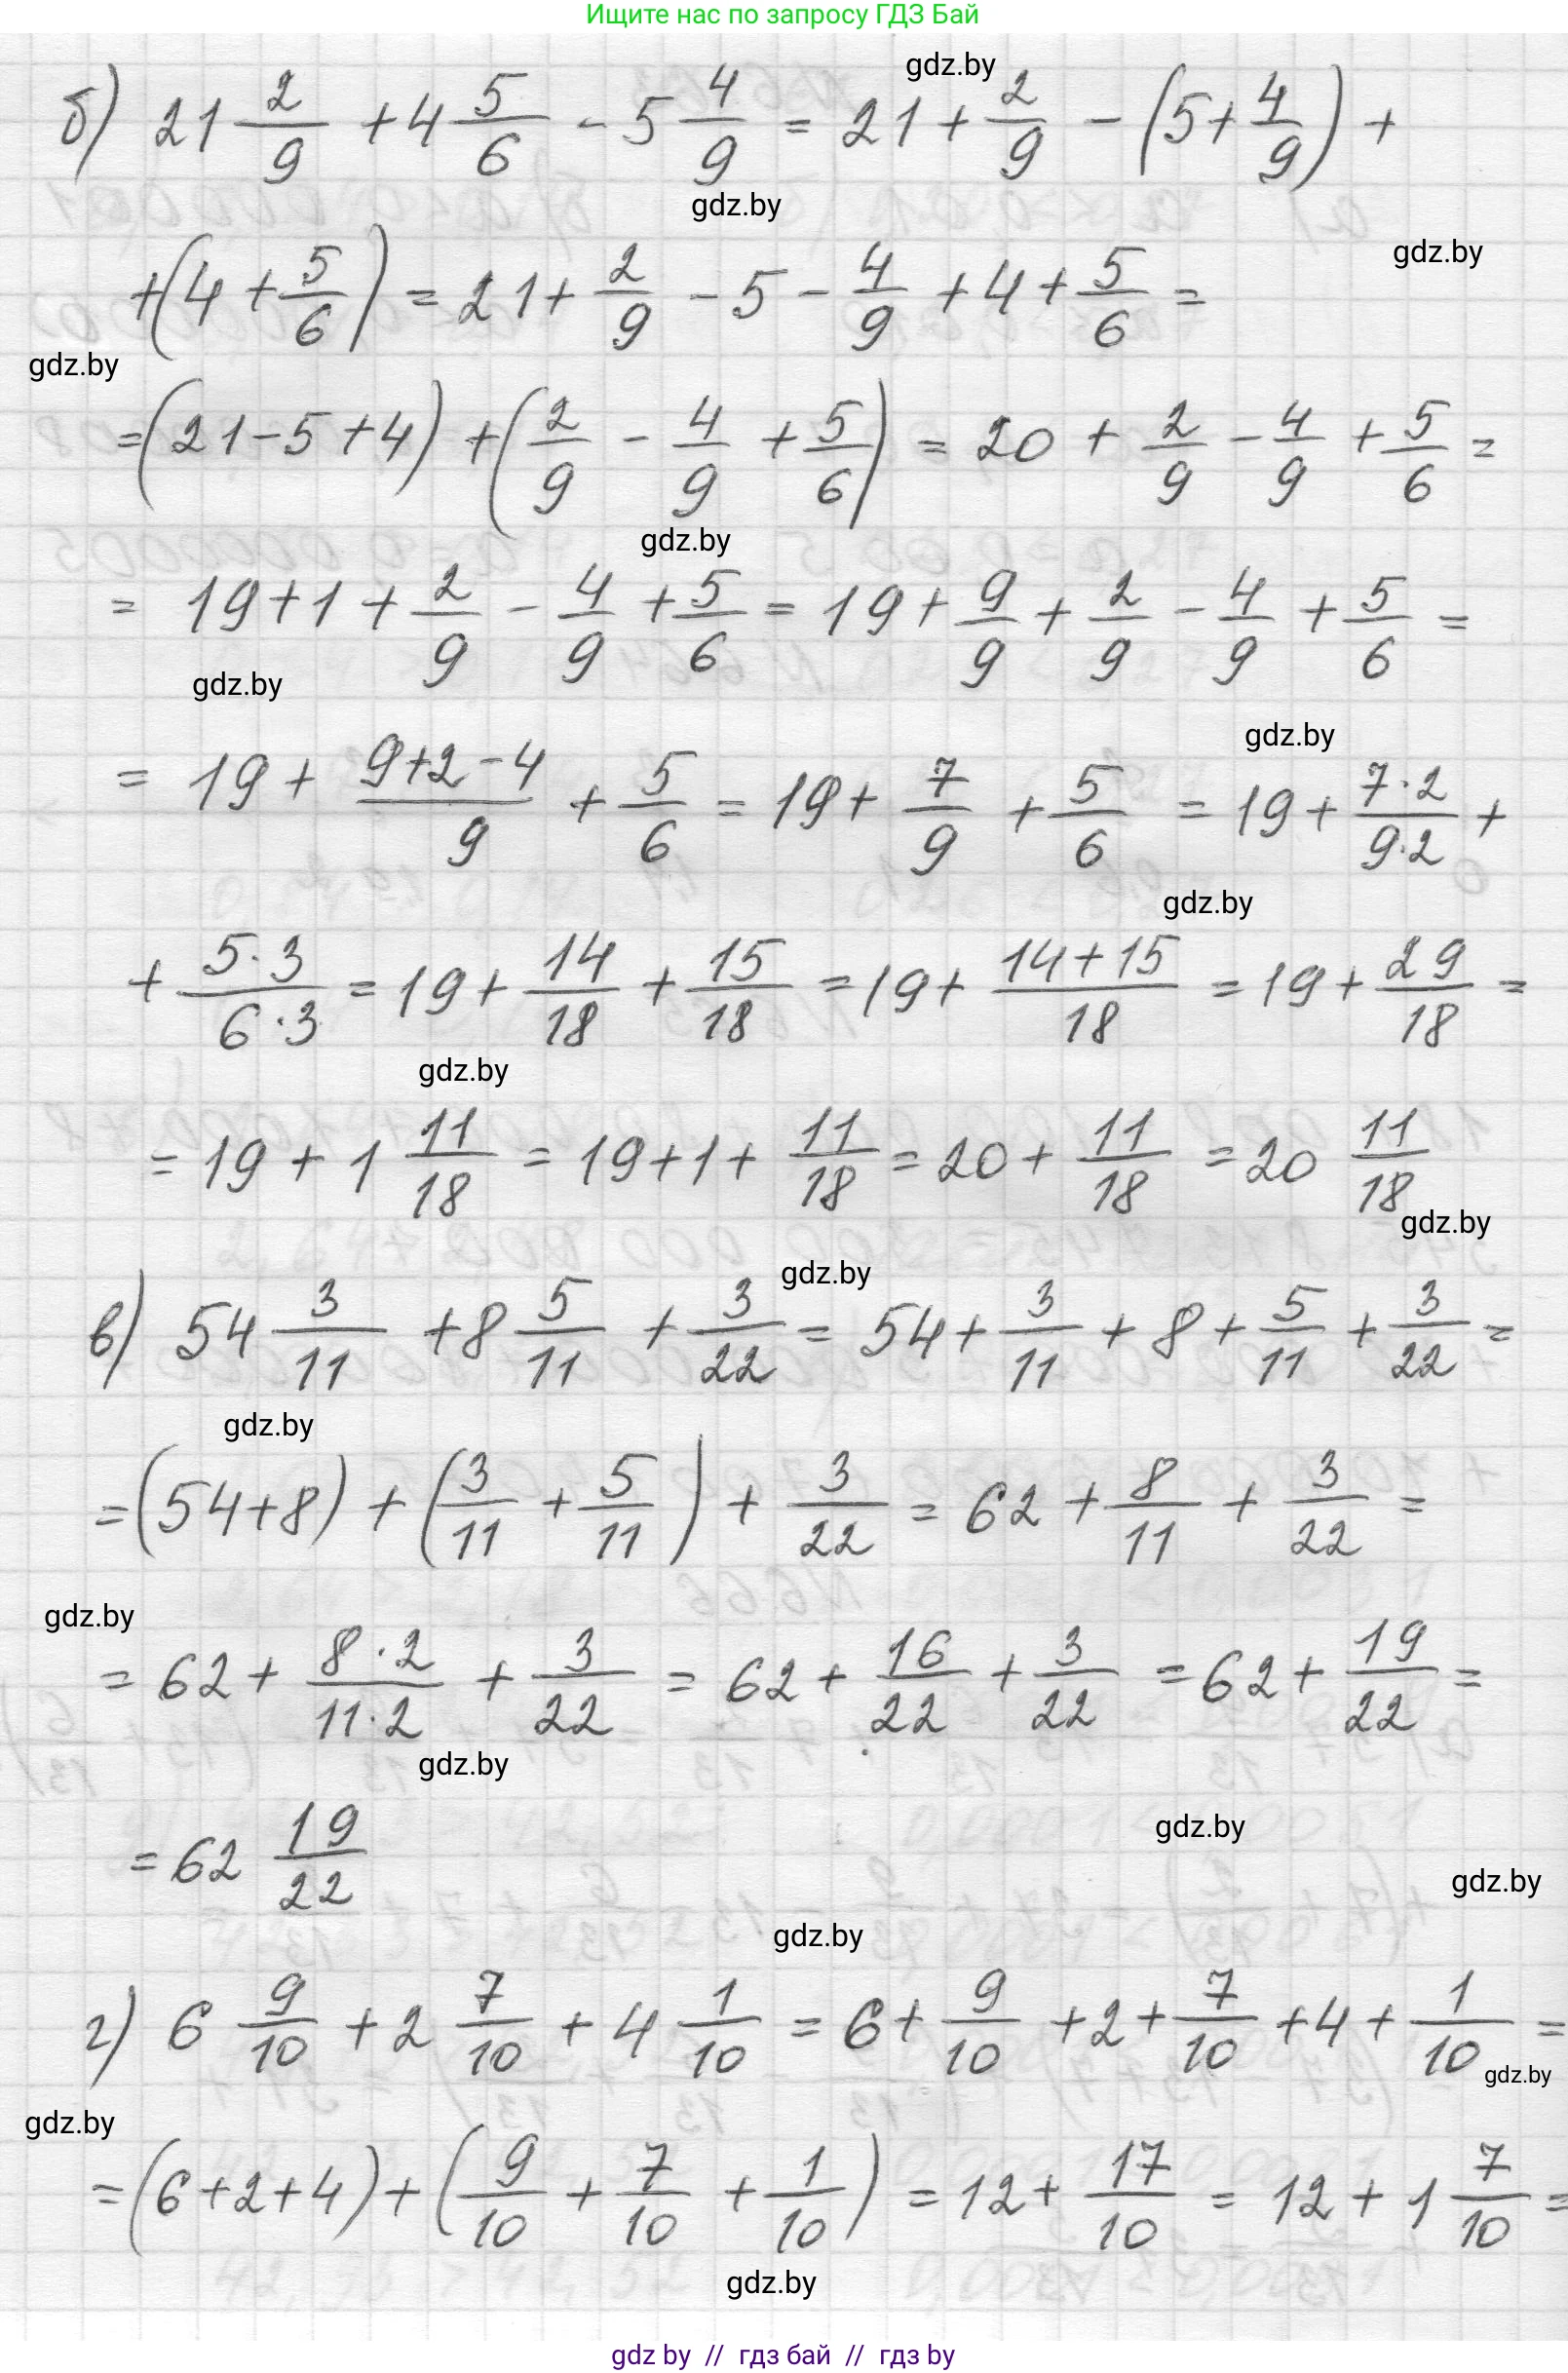 Ищите нас по запросу ГДЗ Бай
gdz.by
б) 21 2/9 + 4 5/6 - 5 4/9 = 21 + 2/9 - (5 + 4/9) +
gdz.by
gdz.by
+ (4 + 5/6) = 21 + 2/9 - 5 - 4/9 + 4 + 5/6 =
gdz.by
= (21 - 5 + 4) + (2/9 - 4/9 + 5/6) = 20 + 2/9 - 4/9 + 5/6 =
gdz.by
= 19 + 1 + 2/9 - 4/9 + 5/6 = 19 + 9/9 + 2/9 - 4/9 + 5/6 =
gdz.by
gdz.by
= 19 + (9+2-4)/9 + 5/6 = 19 + 7/9 + 5/6 = 19 + (7·2)/(9·2) +
gdz.by
+ (5·3)/(6·3) = 19 + 14/18 + 15/18 = 19 + (14+15)/18 = 19 + 29/18 =
gdz.by
= 19 + 1 11/18 = 19 + 1 + 11/18 = 20 + 11/18 = 20 11/18
gdz.by
gdz.by
в) 54 3/11 + 8 5/11 + 3/22 = 54 + 3/11 + 8 + 5/11 + 3/22 =
gdz.by
= (54 + 8) + (3/11 + 5/11) + 3/22 = 62 + 8/11 + 3/22 =
gdz.by
= 62 + (8·2)/(11·2) + 3/22 = 62 + 16/22 + 3/22 = 62 + 19/22 =
gdz.by
gdz.by
= 62 19/22
gdz.by
gdz.by
г) 6 9/10 + 2 7/10 + 4 1/10 = 6 + 9/10 + 2 + 7/10 + 4 + 1/10 =
gdz.by
gdz.by
= (6 + 2 + 4) + (9/10 + 7/10 + 1/10) = 12 + 17/10 = 12 + 1 7/10 =
gdz.by
gdz by // гдз бай // гдз by